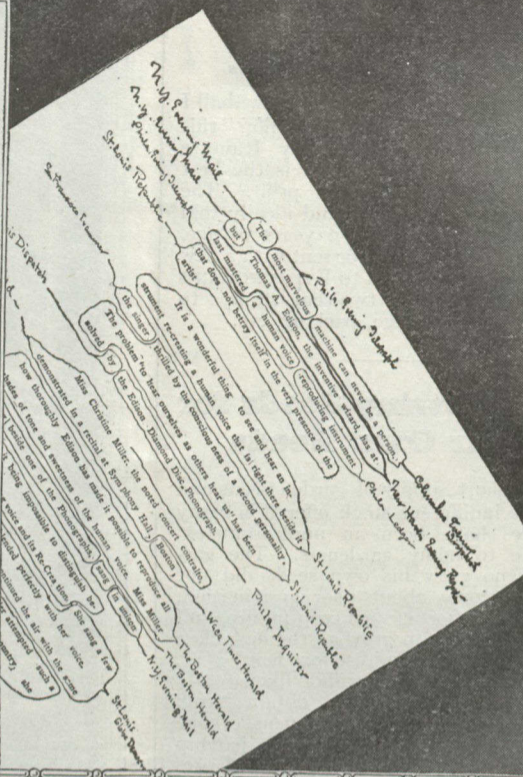 N.Y. Evening Mail
N.Y. Evening Mail
Phila Evening Telegraph
St. Louis Republic
San Francisco Examiner
is Dispatch
The most marvelous machine can never be a person,
but Thomas A. Edison, the inventive wizard, has at
last mastered a human voice reproducing instrument
that does not betray itself in the very presence of the
artist
It is a wonderful thing to see and hear an in-
strument re-creating a human voice that is right there beside it,
the singer thrilled by the consciousness of a second personality
The problem "to hear ourselves as others hear us" has been
solved by the Edison Diamond Disc Phonograph
Miss Christine Miller, the noted concert contralto,
demonstrated in a recital at Symphony Hall, Boston,
how thoroughly Edison has made it possible to reproduce all
shades of tone and sweetness of the human voice. Miss Miller
beside one of the Phonographs, sang in unison
being impossible to distinguish be-
voice and its Re-Creation. She sang a few
ended perfectly with her voice.
ntinued the air with the same
r attempted such a
ountry, she
Phila Evening Telegraph
Columbus
Dispatch
New Haven Evening Register
Phila Ledger
St. Louis Republic
St. Louis Republic
Phila Inquirer
Waco Times Herald
The Boston Herald
The Boston Herald
N.Y. Evening Mail
St Louis
Globe Democrat